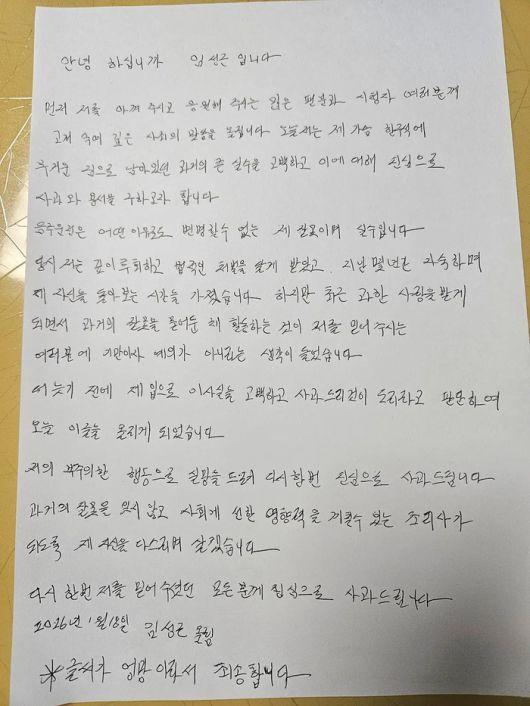 안녕 하십니까 임성근 입니다
먼저 저를 아껴 주시고 응원해 주시는 많은 팬분과 시청자 여러분께
고개 숙여 깊은 사죄의 말씀을 드립니다 오늘 저는 제 가슴 한구석에
무거운 짐으로 남아있던 과거의 큰 실수를 고백하고 이에 대해 진심으로
사과와 용서를 구하고자 합니다
음주운전은 어떤 이유로도 변명할수 없는 제 잘못이며 실수입니다
당시 저는 깊이 후회하고 법적인 처벌을 달게 받았고, 지난 몇년간 자숙하며
제 자신을 돌아 보는 시간을 가졌습니다 하지만 최근 과한 사랑을 받게
되면서 과거의 잘못을 묻어둔 채 활동하는 것이 저를 믿어 주시는
여러분에 기만이자 예의가 아니라는 생각이 들었습니다
더 늦기 전에 제 입으로 이사실을 고백하고 사과드리것이 도리라고 판단하여
오늘 이글을 올리게 되었습니다
저의 부주의한 행동으로 실망을 드려 다시한번 진심으로 사과드립니다
과거의 잘못을 잊지 않고 사회에 선한 영향력을 끼칠수 있는 조리사가
되도록 제 자신을 다스리며 살겠습니다
다시 한번 저를 믿어 주셨던 모든 분께 진심으로 사과드립니다
2026년 1월 18일 임성근 올림
*글씨가 엉망이라서 죄송합니다